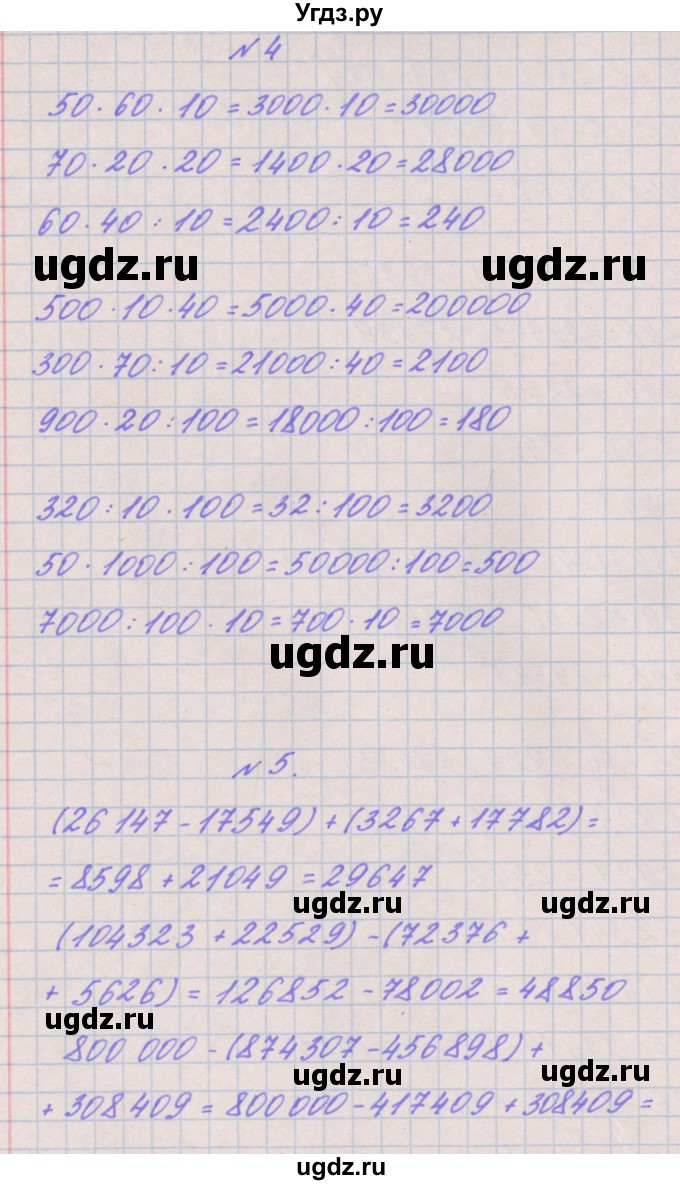 Угдз.ру
№ 4
50 · 60 · 10 = 3000 · 10 = 30000
70 · 20 · 20 = 1400 · 20 = 28000
60 · 40 : 10 = 2400 : 10 = 240
ugdz.ru ugdz.ru
500 · 10 · 40 = 5000 · 40 = 200000
300 · 70 : 10 = 21000 : 40 = 2100
900 · 20 : 100 = 18000 : 100 = 180
320 : 10 · 100 = 32 : 100 = 3200
50 · 1000 : 100 = 50000 : 100 = 500
7000 : 100 · 10 = 700 · 10 = 7000
ugdz.ru
№ 5.
(26 147 - 17549) + (3267 + 17 782) =
= 8598 + 21049 = 29647
ugdz.ru ugdz.ru
(104323 + 22529) - (72376 +
+ 5626) = 126852 - 78002 = 48850
ugdz.ru
800 000 - (874307 - 456898) +
ugdz.ru ugdz.ru
+ 308 409 = 800 000 - 417409 + 308409 =
ugdz.ru